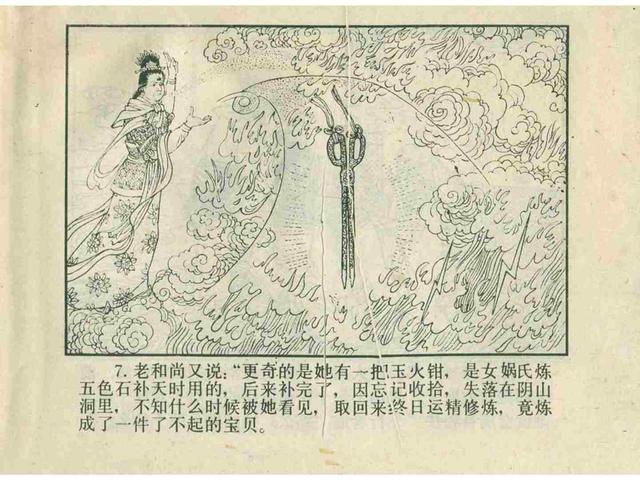 7. 老和尚又说：“更奇的是她有一把玉火钳，是女娲氏炼
五色石补天时用的，后来补完了，因忘记收拾，失落在阴山
洞里，不知什么时候被她看见，取回来终日运精修炼，竟炼
成了一件了不起的宝贝。